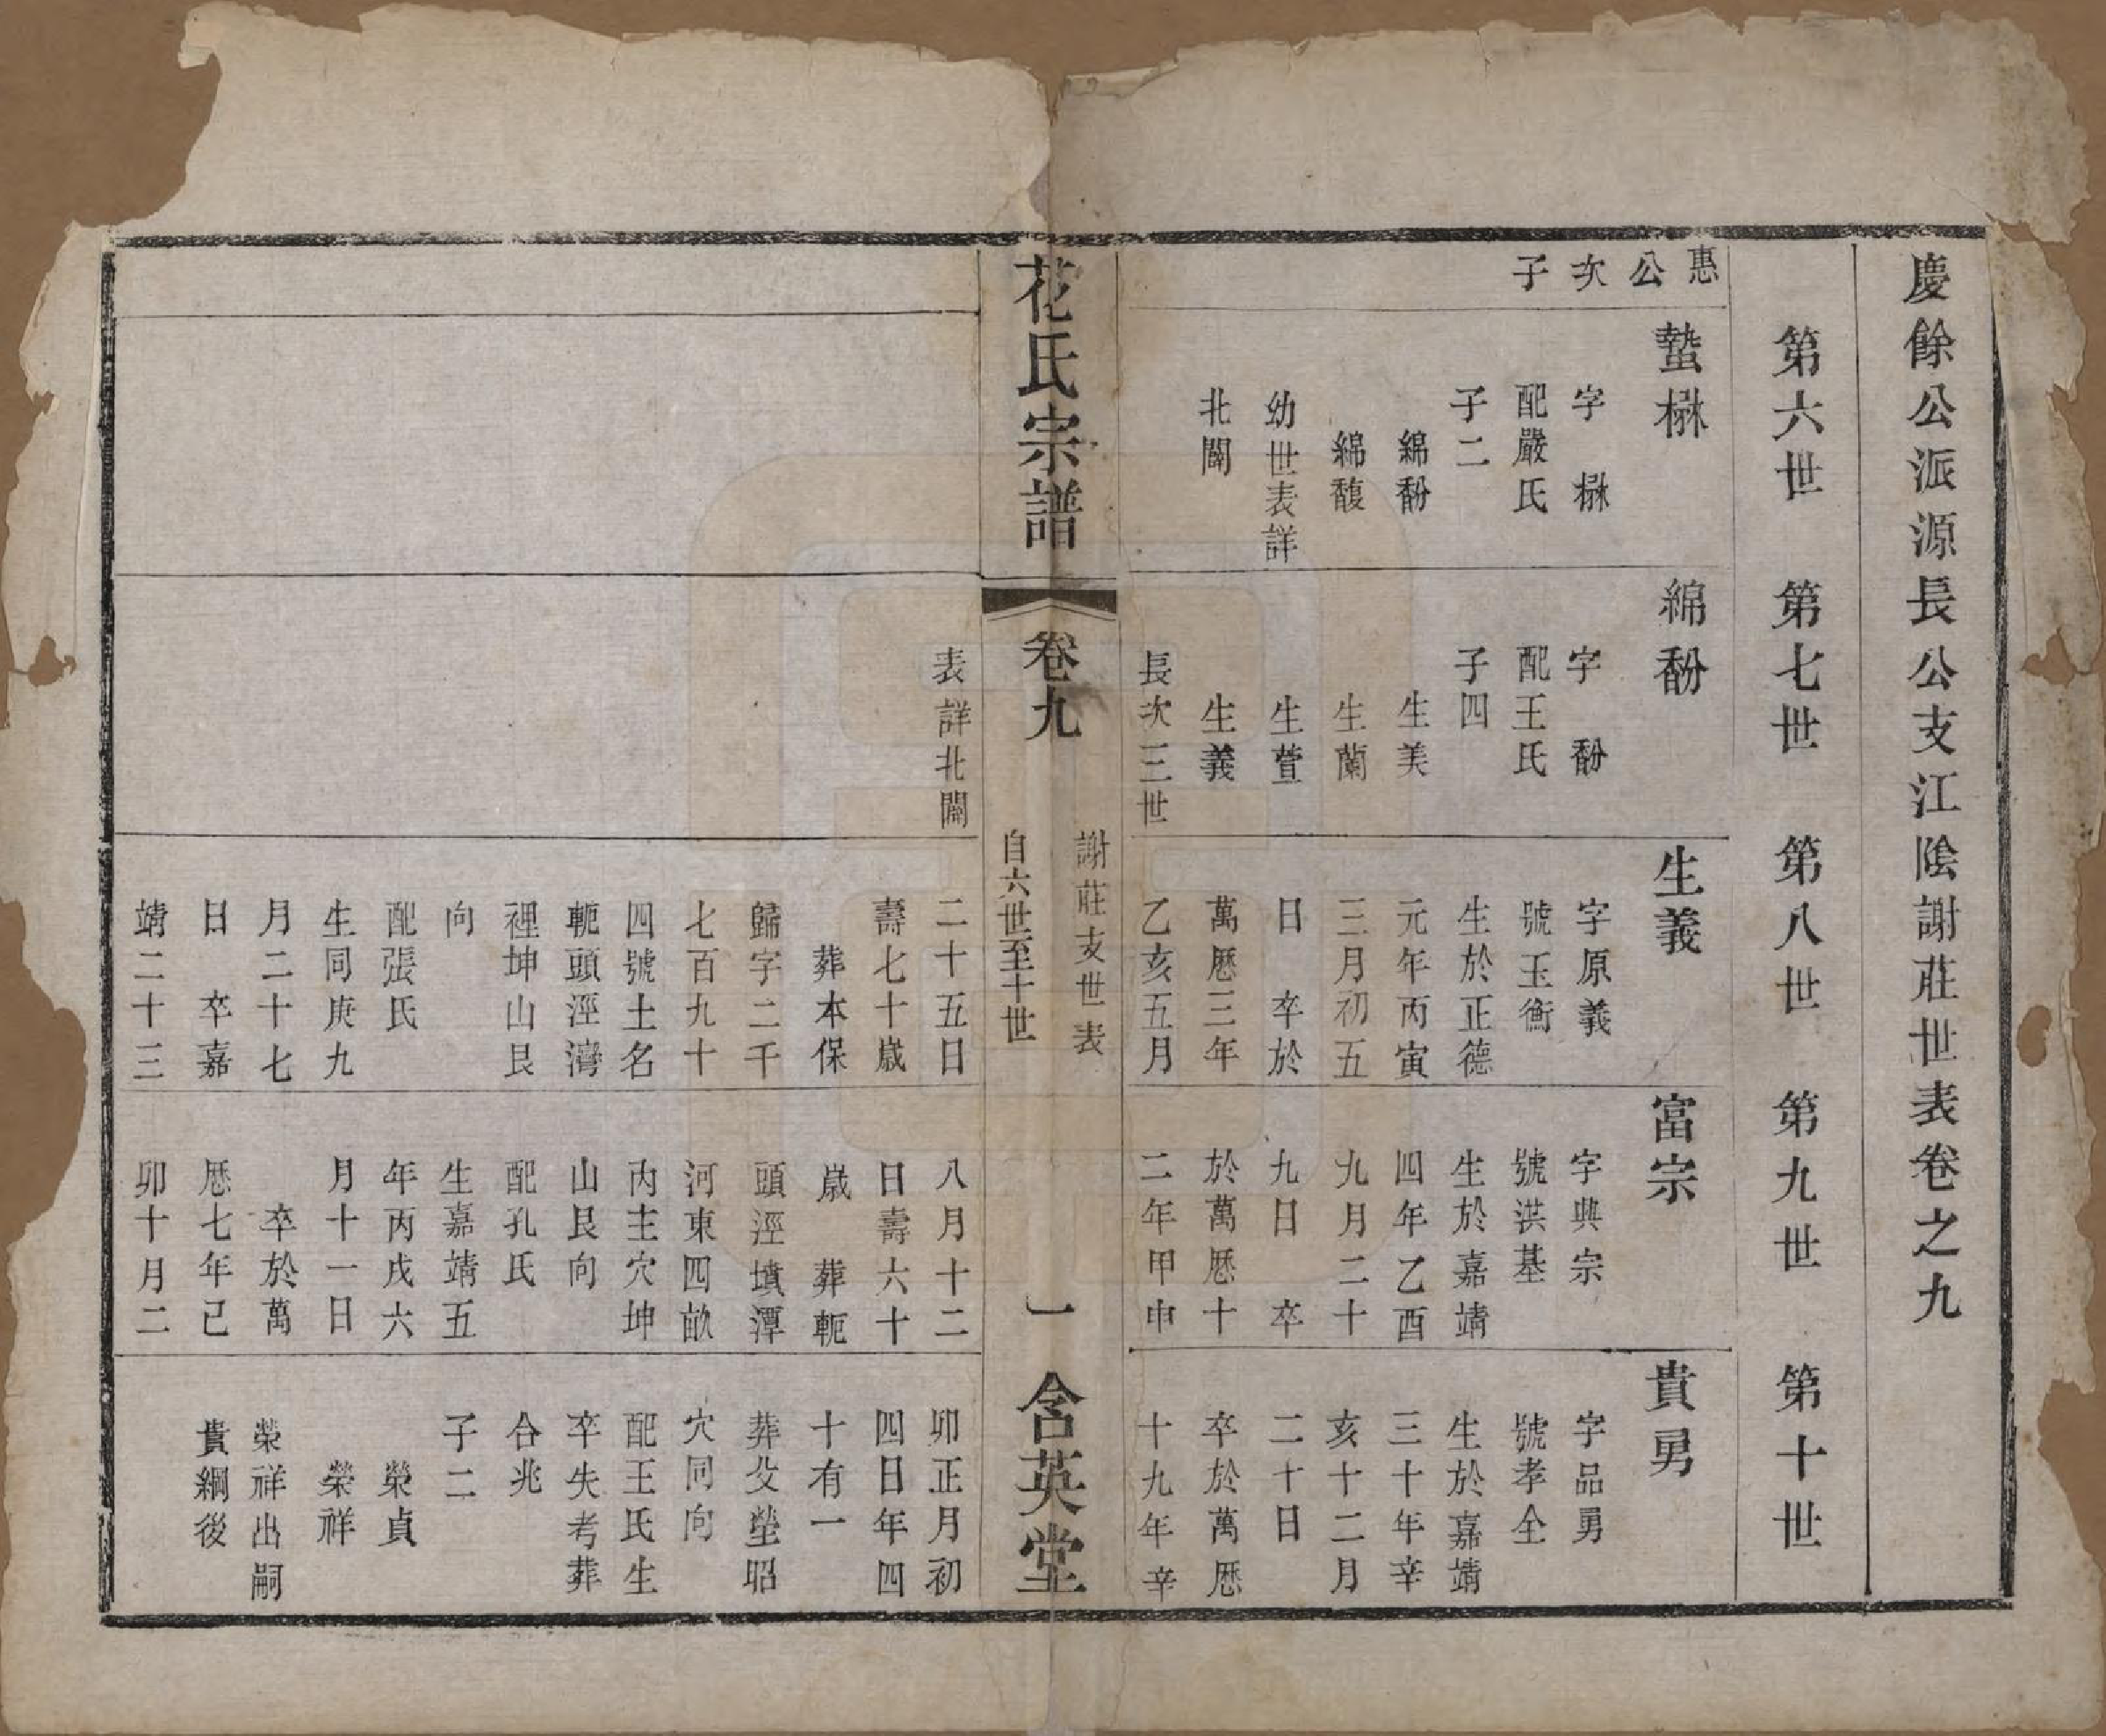 慶餘公派源長公支江陰謝莊世表卷之九
第六世 第七世 第八世 第九世 第十世
惠公次子
蟄楙
字楙
配嚴氏
子二
綿馚
綿馥
幼世表詳
北閘
綿馚
字馚
配王氏
子四
生美
生蘭
生萱
生義
長次三世
表詳北閘
生義
字原義
號玉衡
生於正德
元年丙寅
三月初五
日 卒於
萬厯三年
乙亥五月
二十五日
壽七十歲
葬本保
歸字二千
七百九十
四號土名
軛頭涇灣
裡坤山艮
向
配張氏
生同庚九
月二十七
日 卒嘉
靖二十三
富宗
字典宗
號洪基
生於嘉靖
四年乙酉
九月二十
九日 卒
於萬厯十
二年甲申
八月十二
日壽六十
歲 葬軛
頭涇墳潭
河東四畝
丙主穴坤
山艮向
配孔氏
生嘉靖五
年丙戌六
月十一日
卒於萬
厯七年已
卯十月二
貴男
字品勇
號孝全
生於嘉靖
三十年辛
亥十二月
二十日
卒於萬厯
十九年辛
卯正月初
四日年四
十有一
葬父塋昭
穴同向
配王氏生
卒失考葬
合兆
子二
榮貞
榮祥
榮祥出嗣
貴綱後
花氏宗譜
卷九
謝莊支世表
自六世至十世
一
含英堂